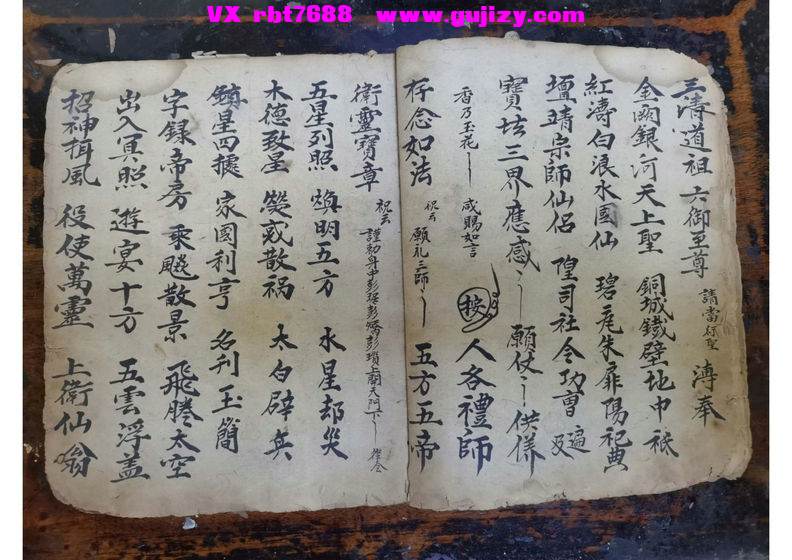 VX rbt7688 www.gujizy.com
三清道祖 六御至尊 請當 聖 溥奉
金闕銀河天上聖 銅城鐵壁地中祇
紅濤白浪水國仙 碧 朱扉陽祀典
壇靖宗師仙侶 隍司社令功曹 遍及
寶 三界應感 願仗 供養
香乃玉花 咸賜如言 按 人各禮師
存念如法 祝云 願礼三師 五方五帝
衛靈寶章 祝云 謹勅身中彭琚彭 彭瓆上關天門下
五星列照 煥明五方 水星却災
木德致星 熒惑散禍 太白辟兵
鎮星四據 家國利亨 名刋玉簡
字録帝房 乘飈散景 飛騰太空
出入冥照 遊宴十方 五雲浮盖
招神揖風 役使萬靈 上衛仙翁